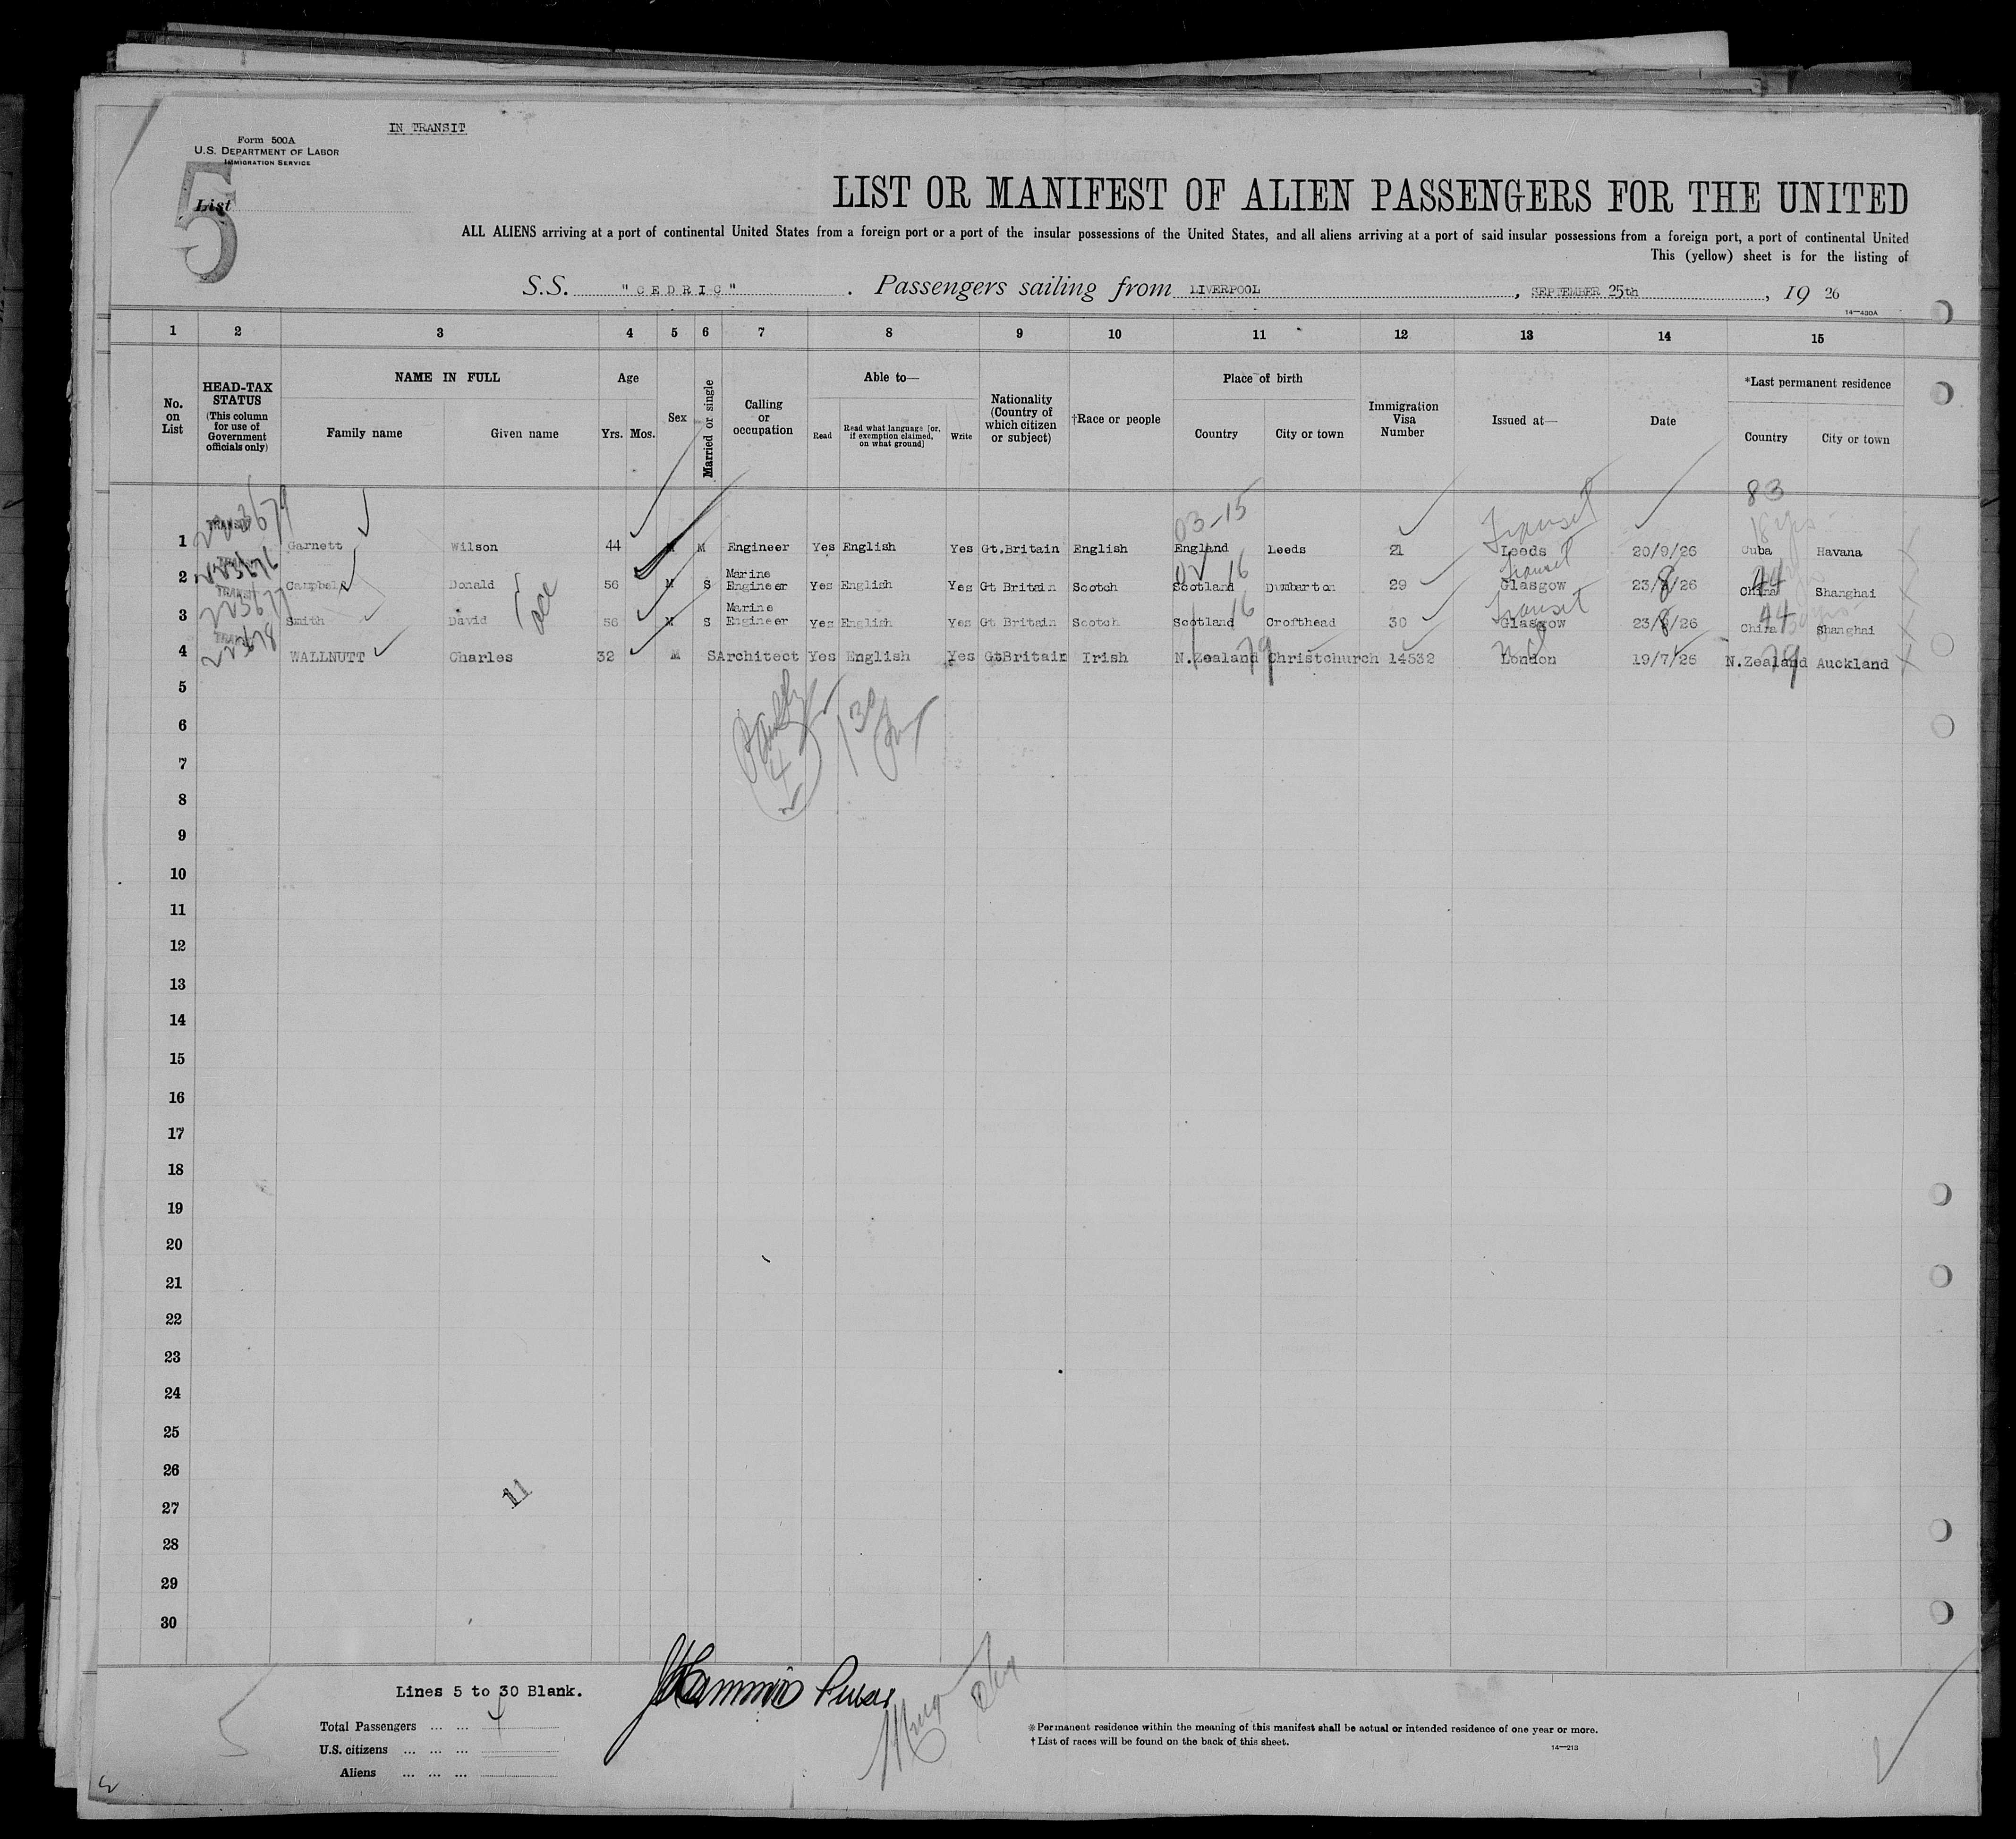 IN TRANSIT
Form 500A
U.S. DEPARTMENT OF LABOR
IMMIGRATION SERVICE
5
List
LIST OR MANIFEST OF ALIEN PASSENGERS FOR THE UNITED
ALL ALIENS arriving at a port of continental United States from a foreign port or a port of the insular possessions of the United States, and all aliens arriving at a port of said insular possessions from a foreign port, a port of continental United
This (yellow) sheet is for the listing of
S.S. "CEDRIC". Passengers sailing from LIVERPOOL, SEPTEMBER 25th, 19 26
14—430A
1 2 3 4 5 6 7 8 9 10 11 12 13 14 15
No. on List
HEAD-TAX STATUS (This column for use of Government officials only)
NAME IN FULL
Family name Given name
Age
Yrs. Mos.
Sex
Married or single
Calling or occupation
Able to—
Read Read what language [or, if exemption claimed, on what ground] Write
Nationality (Country of which citizen or subject)
†Race or people
Place of birth
Country City or town
Immigration Visa Number
Issued at—
Date
*Last permanent residence
Country City or town
83
03-15 Transit 18 yrs
1 TRANSIT 223679 Garnett Wilson 44 M M Engineer Yes English Yes Gt.Britain English England Leeds 21 Leeds 20/9/26 Cuba Havana
02 16 Transit 44
2 223676 Campbell Donald 56 M S Marine Engineer Yes English Yes Gt Britain Scotch Scotland Dumbarton 29 Glasgow 23/8/26 China Shanghai
16 Transit 44
3 TRANSIT 223677 Smith David 56 M S Marine Engineer Yes English Yes Gt Britain Scotch Scotland Crofthead 30 Glasgow 23/8/26 China Shanghai
4 TRANSIT 223678 WALLNUTT Charles 32 M S Architect Yes English Yes GtBritain Irish N.Zealand Christchurch 14532 London 19/7/26 N.Zealand Auckland
79 79
5
6
7
8
9
10
11
12
13
14
15
16
17
18
19
20
21
22
23
24
25
26
27
28
29
30
11
Lines 5 to 30 Blank.
Total Passengers ... ... 4
U.S. citizens ... ... ...
Aliens ... ... ...
Purser
*Permanent residence within the meaning of this manifest shall be actual or intended residence of one year or more.
†List of races will be found on the back of this sheet.
14—213